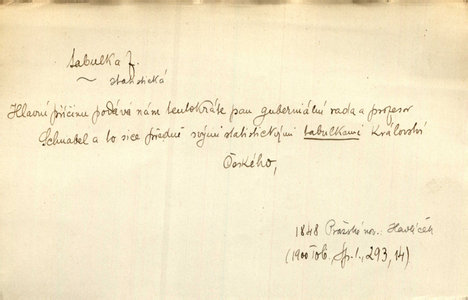 tabulka f.
~ statistická
Hlavní příčinu podává nám tentokráte pan guberniální rada a profesor
Schnabel a to sice předně svými statistickými tabulkami Království
Českého,
1848 Pražské nov.: Havlíček
(1900 Tob. Sp. I., 293, 14)